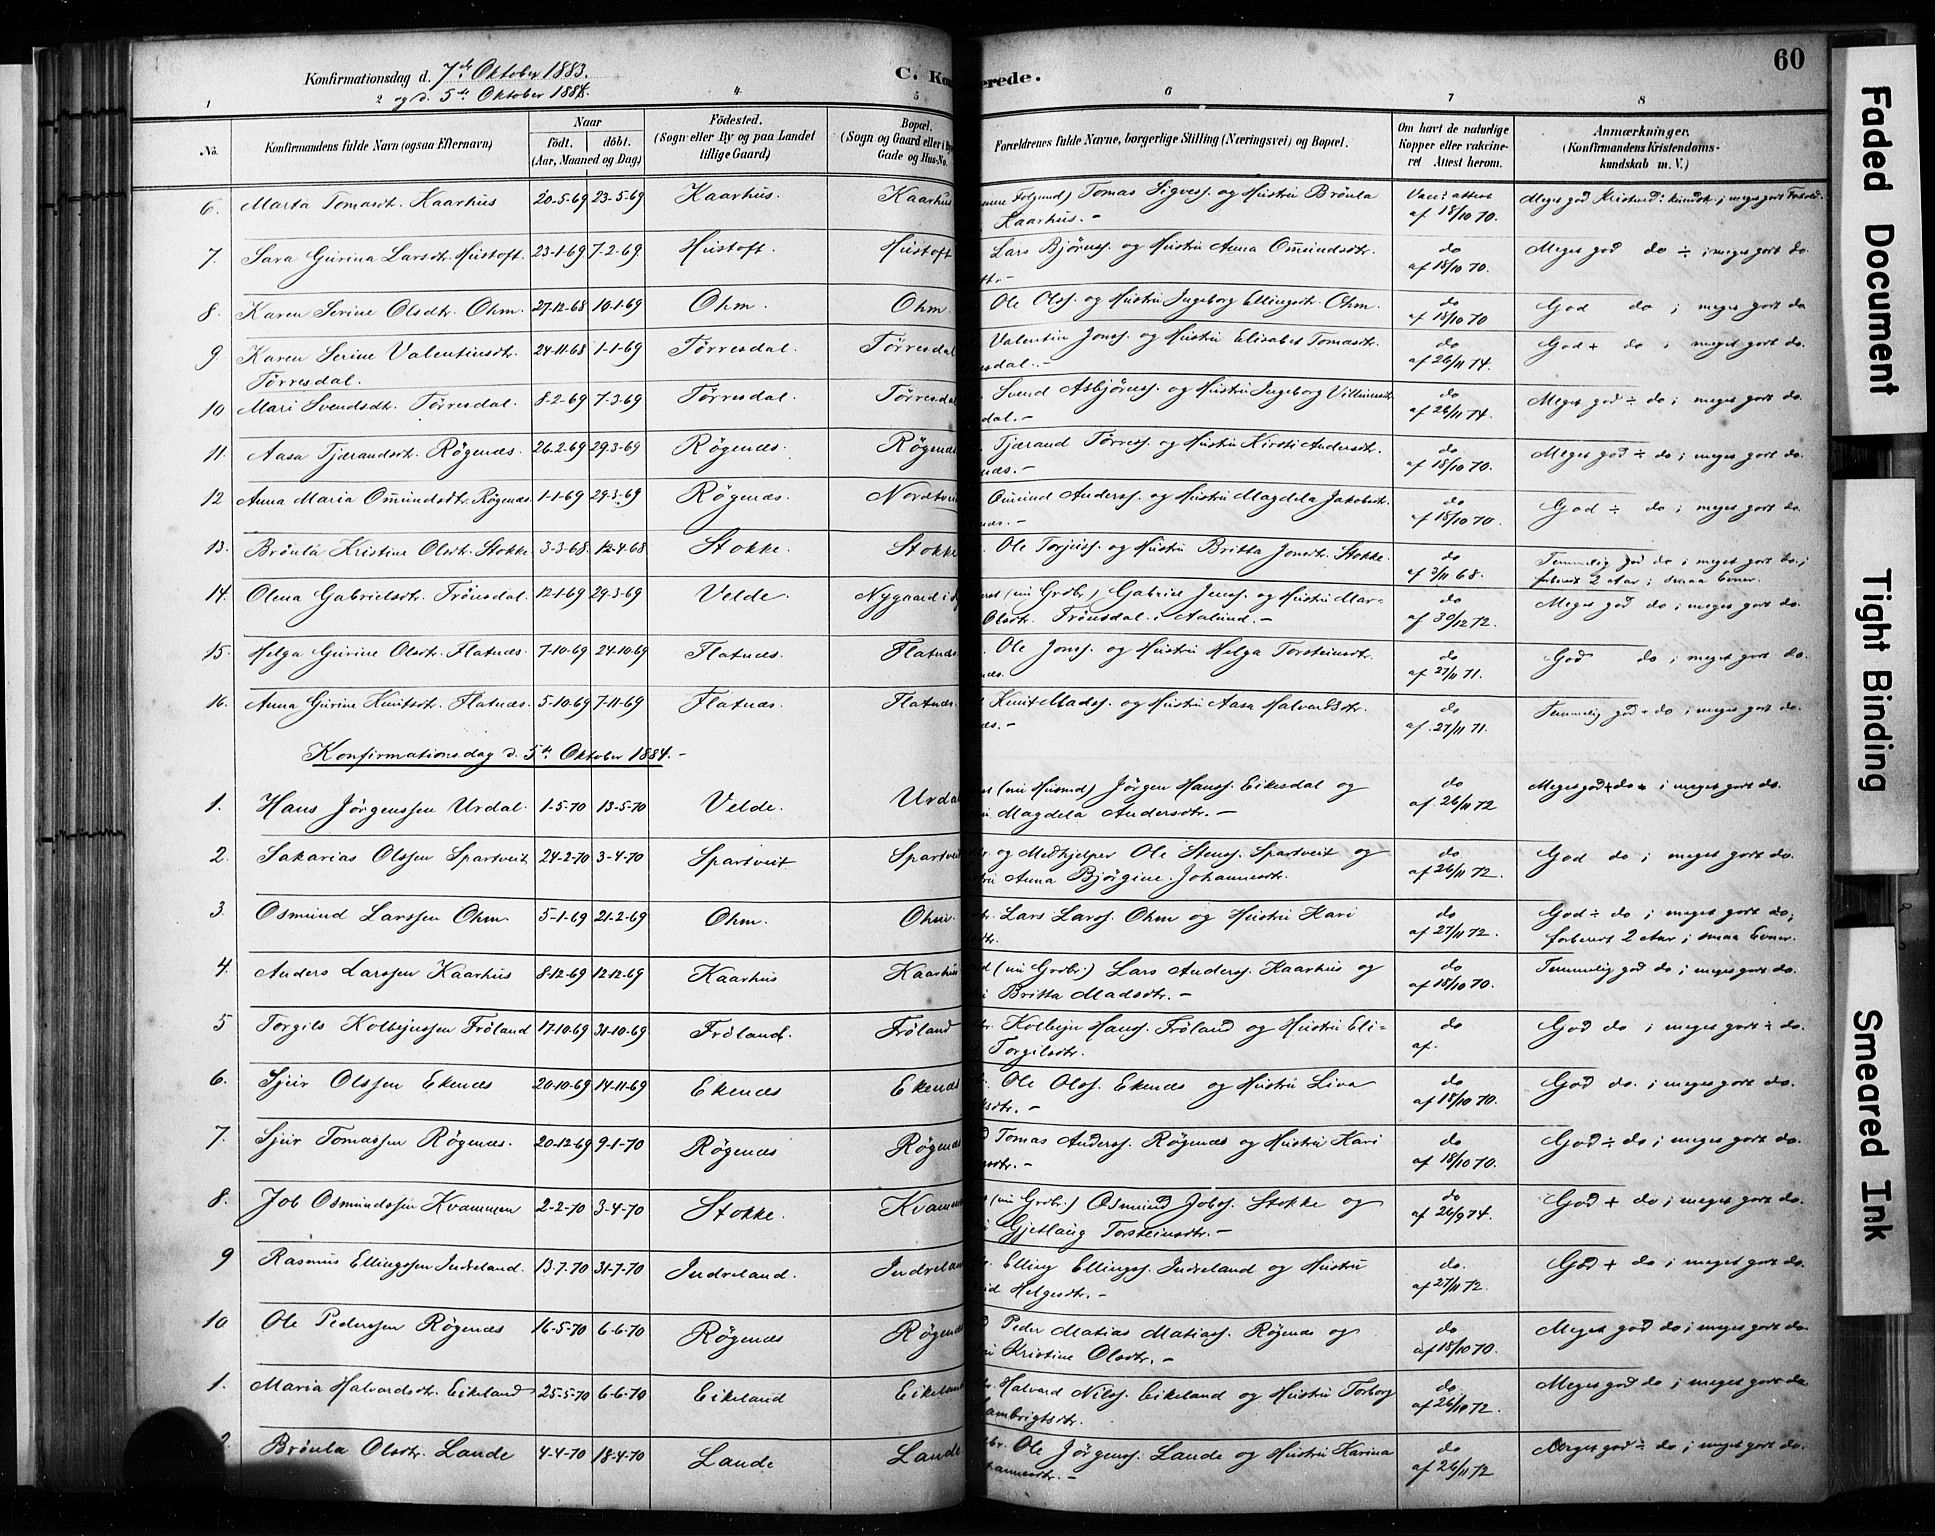 Konfirmationsdag d. 7de Oktober 1883.
og d. 5te Oktober 1884.
C. Kon
erede.
60
1 2 4 5 6 7 8
No.
Konfirmandens fulde Navn (ogsaa Efternavn)
Naar
født. døbt.
(Aar, Maaned og Dag)
Fødested.
(Sogn eller By og paa Landet
tillige Gaard)
Bopæl.
(Sogn og Gaard eller i By
Gade og Hus-No.
Forældrenes fulde Navne, borgerlige Stilling (Næringsvei) og Bopæl.
Om havt de naturlige
Kopper eller vakcine-
ret Attest herom.
Anmærkninger.
(Konfirmandens Kristendoms-
kundskab m. V.)
6. Marta Tomasdt. Kaarhus 20-5-69 23-5-69 Kaarhus. Kaarhus Tomas Sigvess. og Hustru Brønla
Kaarhus. - Vacc. attest af 18/10 70. Meget god Kristend: kundsk. ; meget godt Forhold.
7. Sara Gurina Larsdt. Hustoft. 23-1-69 7-2-69 Hustoft. Hustoft Lars Bjørnss. og Hustru Anna Omundsdtr.
do af 18/10 70. Meget god do ÷ ; meget godt do.
8. Karen Serine Olsdtr. Ohm. 27-12-68 10-1-69 Ohm. Ohm. Ole Olss. og Hustru Ingeborg Ellingsdtr. Ohm. do af 18/10 70 God do ; meget godt do
9 Karen Serine Valentinsdtr. 24-11-68 1-1-69 Tørresdal. Tørresdal Valentin Jonss. og Hustru Elisabet Tomasdtr. do af 26/11 74. God + do ; meget godt do.
Tørresdal. dal. -
10. Mari Svendsdt. Tørresdal. 8-2-69 7-3-69 Tørresdal. Tørresdal Svend Asbjørnss. og Hustru Ingeborg Villumsdt do af 26/11 74. Meget god ÷ do ; meget godt do.
dal. -
11. Aasa Tjerandsdt. Røgenæs. 26-2-69 29-3-69 Røgenæs. Røgenæs Tjærand Tørress. og Hustru Kirsti Andersdt. do af 18/10 70. Meget god ÷ do ; meget godt do.
næs. -
12 Anna Maria Omundsdtr. Røgenæs 1-1-69 29-3-69 Røgenæs. Nordtvei Omund Anderss. og Hustru Magdela Jakobsdt. do af 18/10 70. God ÷ do ; meget godt do.
næs. -
13. Brønla Kristine Olsdt. Stokke 3-3-68 12-4-68 Stokke. Stokke Ole Torjuss. og Hustru Britta Jonsdt. Stokke. do af 3/11 68. Temmelig god do ; meget godt do. ;
forberedt 2 Aar ; smaa Evner.
14. Olena Gabrielsdt. Frønsdal. 12-1-69 29-3-69 Velde. Nygaard i (nu Grdbr.) Gabriel Jenss. og Hustru Mar= do af 30/12 72. Meget god do ; meget godt do.
Olsdtr. Frønsdal i Aalund. -
15. Helga Gurine Olsdt. Flatnæs. 7-10-69 24-10-69 Flatnæs. Flatnæs. Ole Jonss. og Hustru Helga Torsteinsdt. do af 27/11 71. God do ; meget godt do.
16. Anna Gurine Knutsdt. Flatnæs. 5-10-69 7-11-69 Flatnæs. Flatnæs. Knut Madss. og Hustru Aasa Halvardsdtr. do af 27/11 71. Temmelig god do ; meget godt do.
Konfirmationsdag d. 5te Oktober 1884. -
1. Hans Jørgenssen Urdal. 1-5-70 13-5-70 Velde. Urdal (nu Husmd) Jørgen Hanss. Eikesdal og do af 26/11 72 Meget god + do ; meget godt do.
Magdela Andersdtr. -
2. Sakarias Olssen Spartveit 24-2-70 3-4-70 Spartveit Spartveit og Medhjelper Ole Stenss. Spartveit og do af 26/11 72. God do ; meget godt do.
Anna Bjørgine Johannesdt.
3. Osmund Larssen Ohm 5-1-69 21-2-69 Ohm. Ohm. Lars Larss. Ohm og Hustru Kari do af 27/11 72. God ÷ do ; meget godt do ;
forberedt 2 Aar ; smaa Evner.
4. Anders Larssen Kaarhus 8-12-69 12-12-69 Kaarhus Kaarhus (nu Grdbr.) Lars Anderss. Kaarhus og do af 18/10 70. Temmelig god do ; meget godt do.
Britta Madsdtr. -
5 Torgils Kolbejnssen Frøland 17-10-69 31-10-69 Frøland. Frøland Kolbejn Hanss. Frøland og Hustru Eli- do af. God do ; meget godt ÷ do.
Torgilsdtr.
6. Sjur Olssen Ekenæs 20-10-69 14-11-69 Ekenæs Ekenæs Ole Olss. Ekenæs og Hustru Liva do af 18/10 70. God do. ; meget godt do.
7. Sjur Tomassen Røgenæs. 20-12-69 9-1-70 Røgenæs Røgenæs Tomas Anderss. Røgenæs og Hustru Kari do af 18/10 70. God ÷ do ; meget godt do.
8. Job Osmundssen Kvammen 2-2-70 3-4-70 Stokke. Kvamme (nu Grdbr.) Osmund Jobss. Stokke og do af 26/9 74. God + do ; meget godt do.
Gjetlaug Torsteinsdtr. -
9 Rasmus Ellingssen Indreland. 13-7-70 31-7-70 Indreland. Indreland Elling Ellingss. Indreland og Hustru do. af 27/11 72. God + do ; meget godt do.
Helgesdtr. -
10 Ole Pederssen Røgenæs 16-5-70 6-6-70 Røgenæs Røgenæs Peder Matias Matiass. Røgenæs og do af 18/10 70. Meget god do ; meget godt do.
Kristine Olsdtr. -
1. Maria Halvardsdt. Eikeland 25-5-70 6-6-70 Eikeland Eikeland Halvard Nilss. Eikeland og Hustru Torborg do af 26/11 72. Meget god do ; meget godt do
Lambrigtsdtr.
2. Brønla Olsdtr. Lande 4-4-70 18-4-70 Lande Lande Ole Jørgenss. Lande og Hustru Karina do af 26/11 72 Meget god ÷ do ; meget godt do.
Faded Document
Tight Binding
Smeared Ink